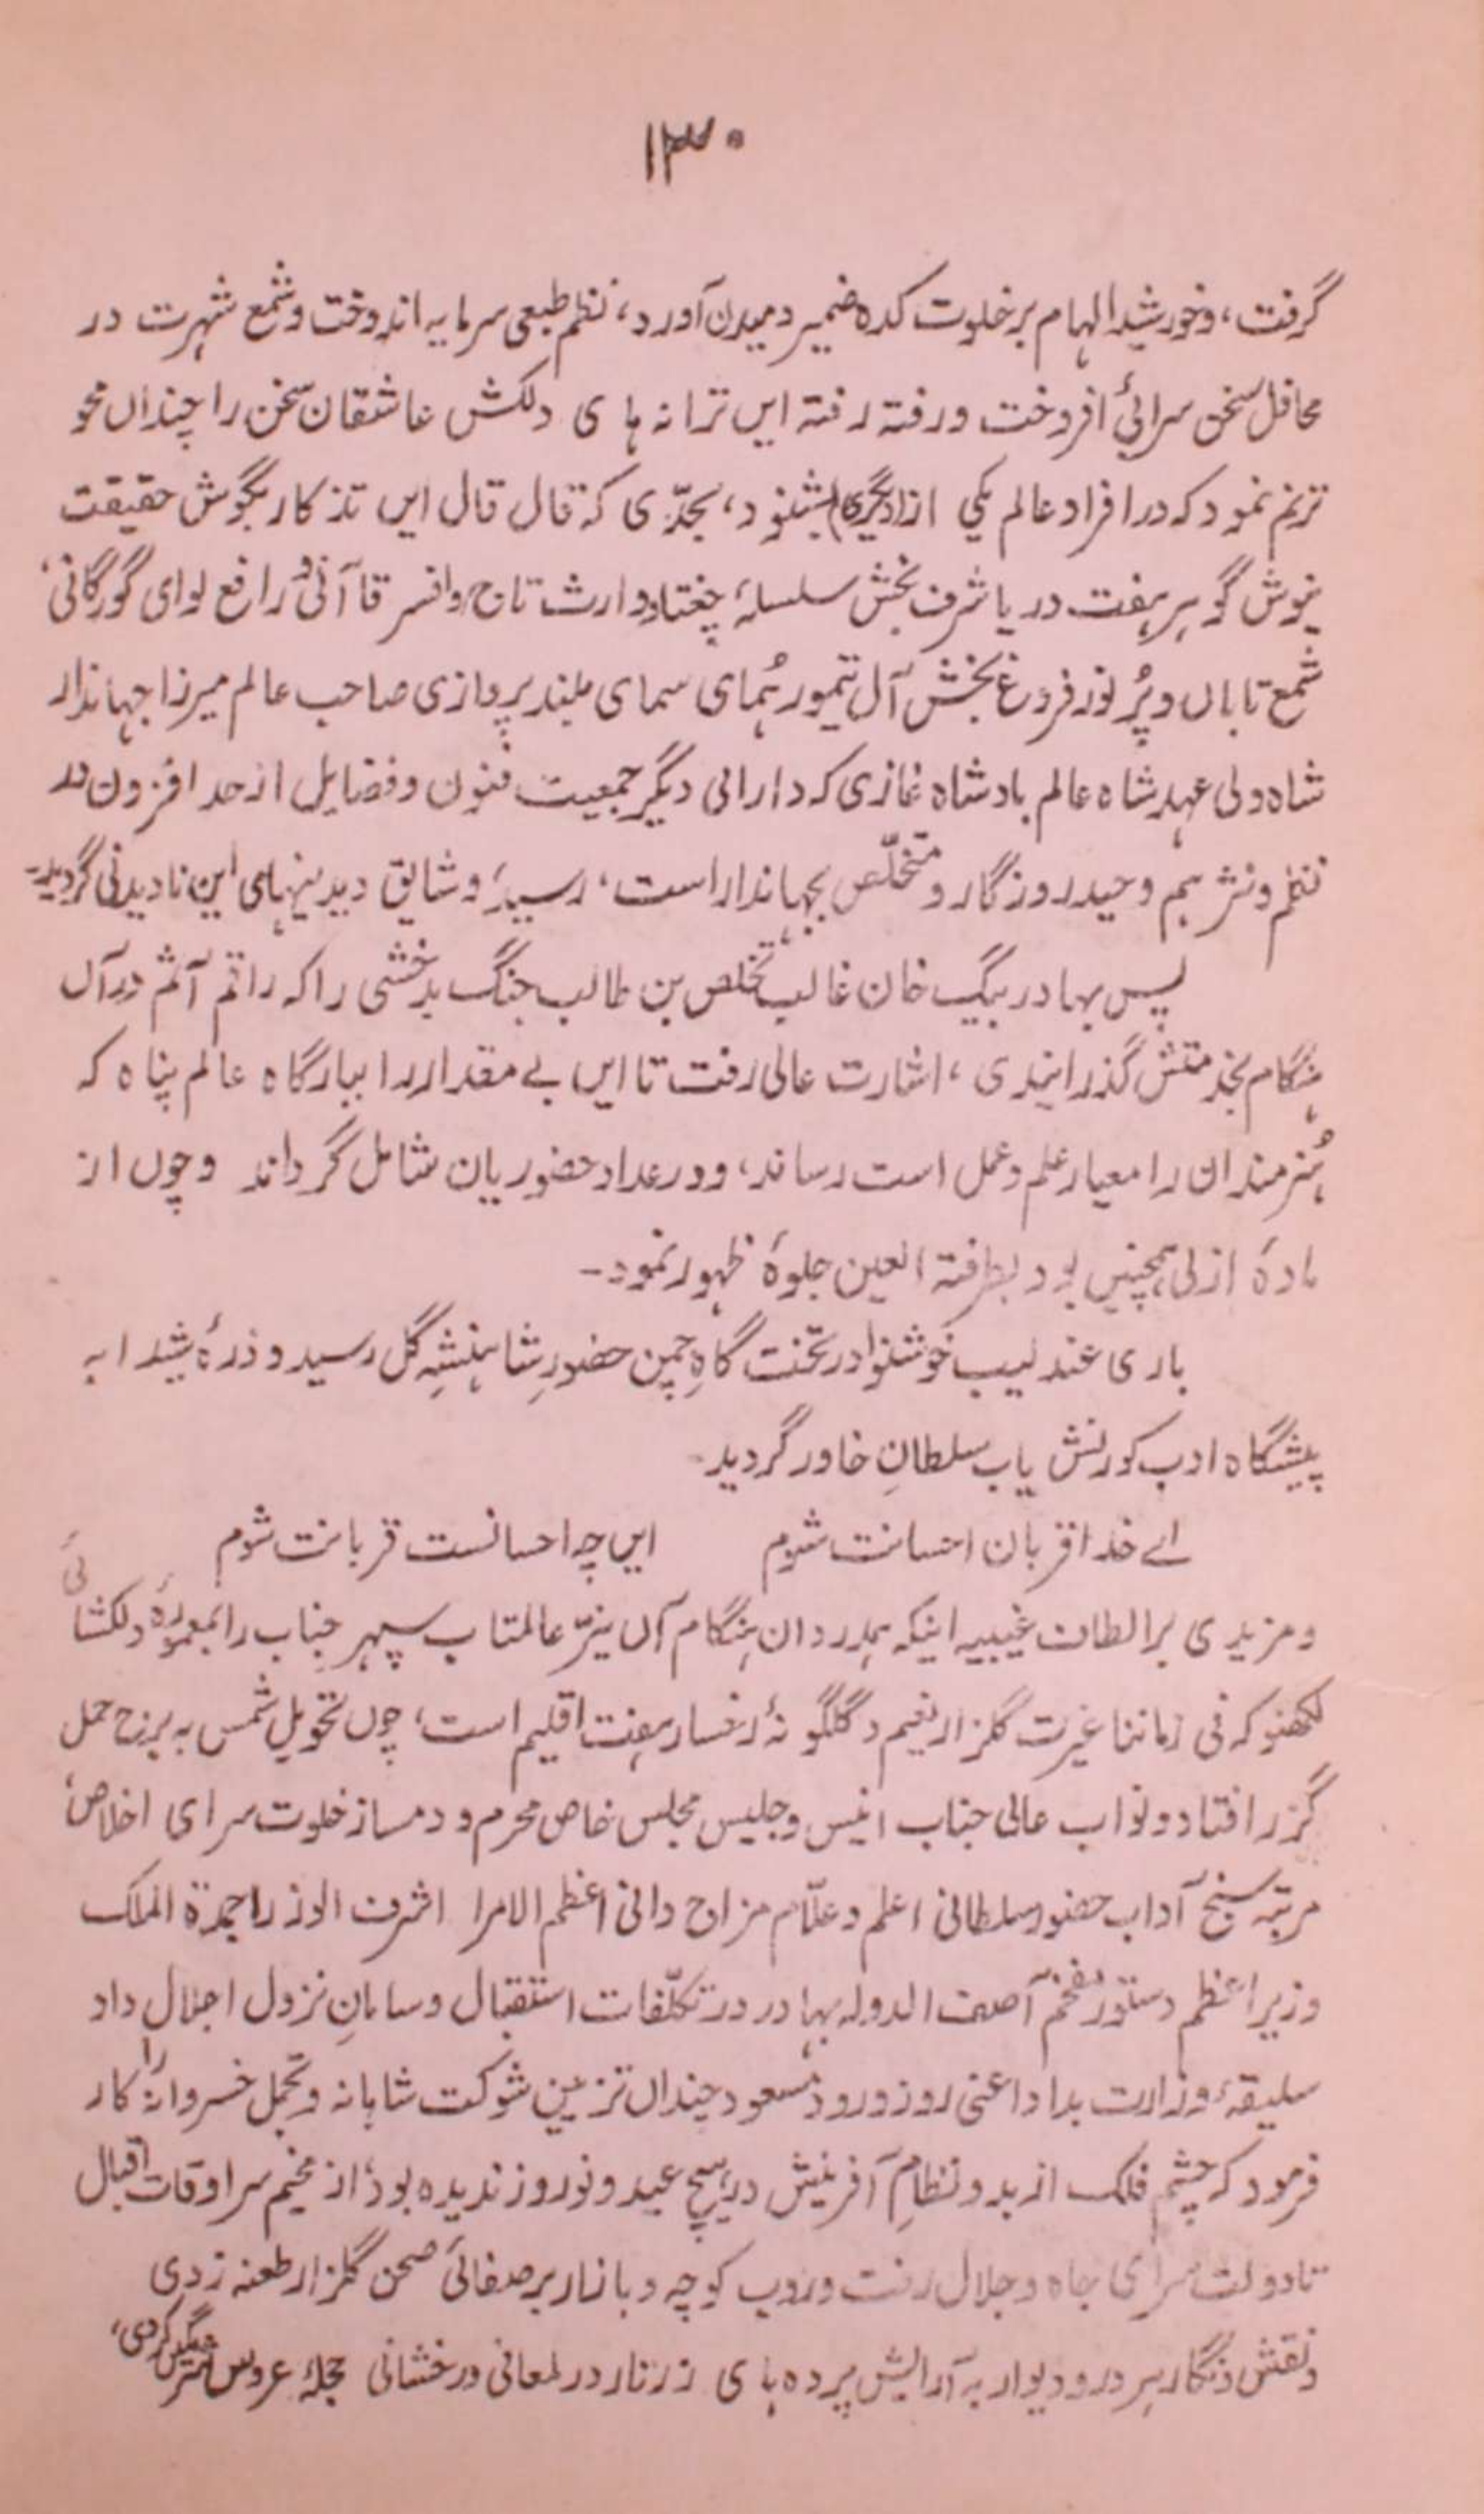 ۱۳۰
گرفت، و خورشید الہام بر خلوت کدہ ضمیر دمیدن آورد، نظم طبعی سرمایہ اندوخت و شمع شہرت در
محافل سخن سرائی افروخت و رفتہ رفتہ ایں ترانہ ہا ی دلکش عاشقان سخن را چنداں محو
ترنم نمود کہ در افراد عالم یکی از دیگری بشنود، بحدّی کہ قال قال ایں تذکار بگوش حقیقت
نیوش گوہر ہفت دریا شرف بخش سلسلۂ چغتا و وارث تاج و افسر قاآنی و رافع لوای گورگانی،
شمع تاباں و پُر نور فروغ بخش آل تیمور ہُمای سمای بلند پروازی صاحب عالم میرزا جہاندار
شاہ ولی عہد شاہ عالم بادشاہ غازی کہ دارائی دیگر جمعیت فنون و فضایل از حد افزون در
نظم و نثر ہم وحید روزگار و متخلّص بجہاندار است، رسید و شایق دیدنیہای این نادیدنی گردید۔
پس بہادر بیگ خان غالب تخلص بن طالب جنگ بدخشی را کہ راقم آثم در آں
ہنگام بخدمتش گذرانیدی، اشارت عالی رفت تا ایں بے مقدار را ببارگاہ عالم پناہ کہ
ہُنرمندان را معیار علم و عمل است رساند، و در عداد حضوریان شامل گرداند و چوں از
مادۂ ازلی ہمچنیں بود بطرفتہ العین جلوۂ ظہور نمود۔
باری عندلیب خوشنوا در تخت گاہِ چمن حضورِ شاہنشہِ گل رسید و ذرۂ شیدا بہ
پیشگاہ ادب کورنش یاب سلطانِ خاور گردید۔
اے خدا قربان احسانت شوم ایں چہ احسانست قربانت شوم
و مزیدی بر الطاف غیبیہ اینکہ ہمدردان ہنگام آں نیّر عالمتاب سپہر جناب را بمعمورۂ دلکشائی
لکھنو کہ فی زماننا غیرت گلزار نعیم و گلگونۂ رخسار ہفت اقلیم است، چوں تحویل شمس بہ برج حمل
گزر افتاد و نواب عالی جناب انیس و جلیس مجلس خاص محرم و دمساز خلوت سرای اخلاص،
مرتبہ سنج آداب حضور سلطانی اعلم و علّام مزاح دانی اعظم الامرا اشرف الوزرا جمدة الملک
وزیر اعظم دستور مفخم آصف الدولہ بہادر در تکلّفات استقبال و سامانِ نزول اجلال داد
سلیقۂ وزارت بداد اعنی روز ورود مسعود چنداں تزئین شوکت شاہانہ و تجمل خسروانہ را کار
فرمود کہ چشم فلک از بدو نظامِ آفرینش در ہیچ عید و نوروز ندیدہ بود، از مخیم سراوقات اقبال
تا دولت سرای جاہ و جلال رفت و روب کوچہ و بازار بر صفائی صحن گلزار طعنہ زدی
و نقش و نگار ہر در و دیوار بہ آرایش پردہ ہا ی زرتار در لمعانی و رخشانی حجلۂ عروس